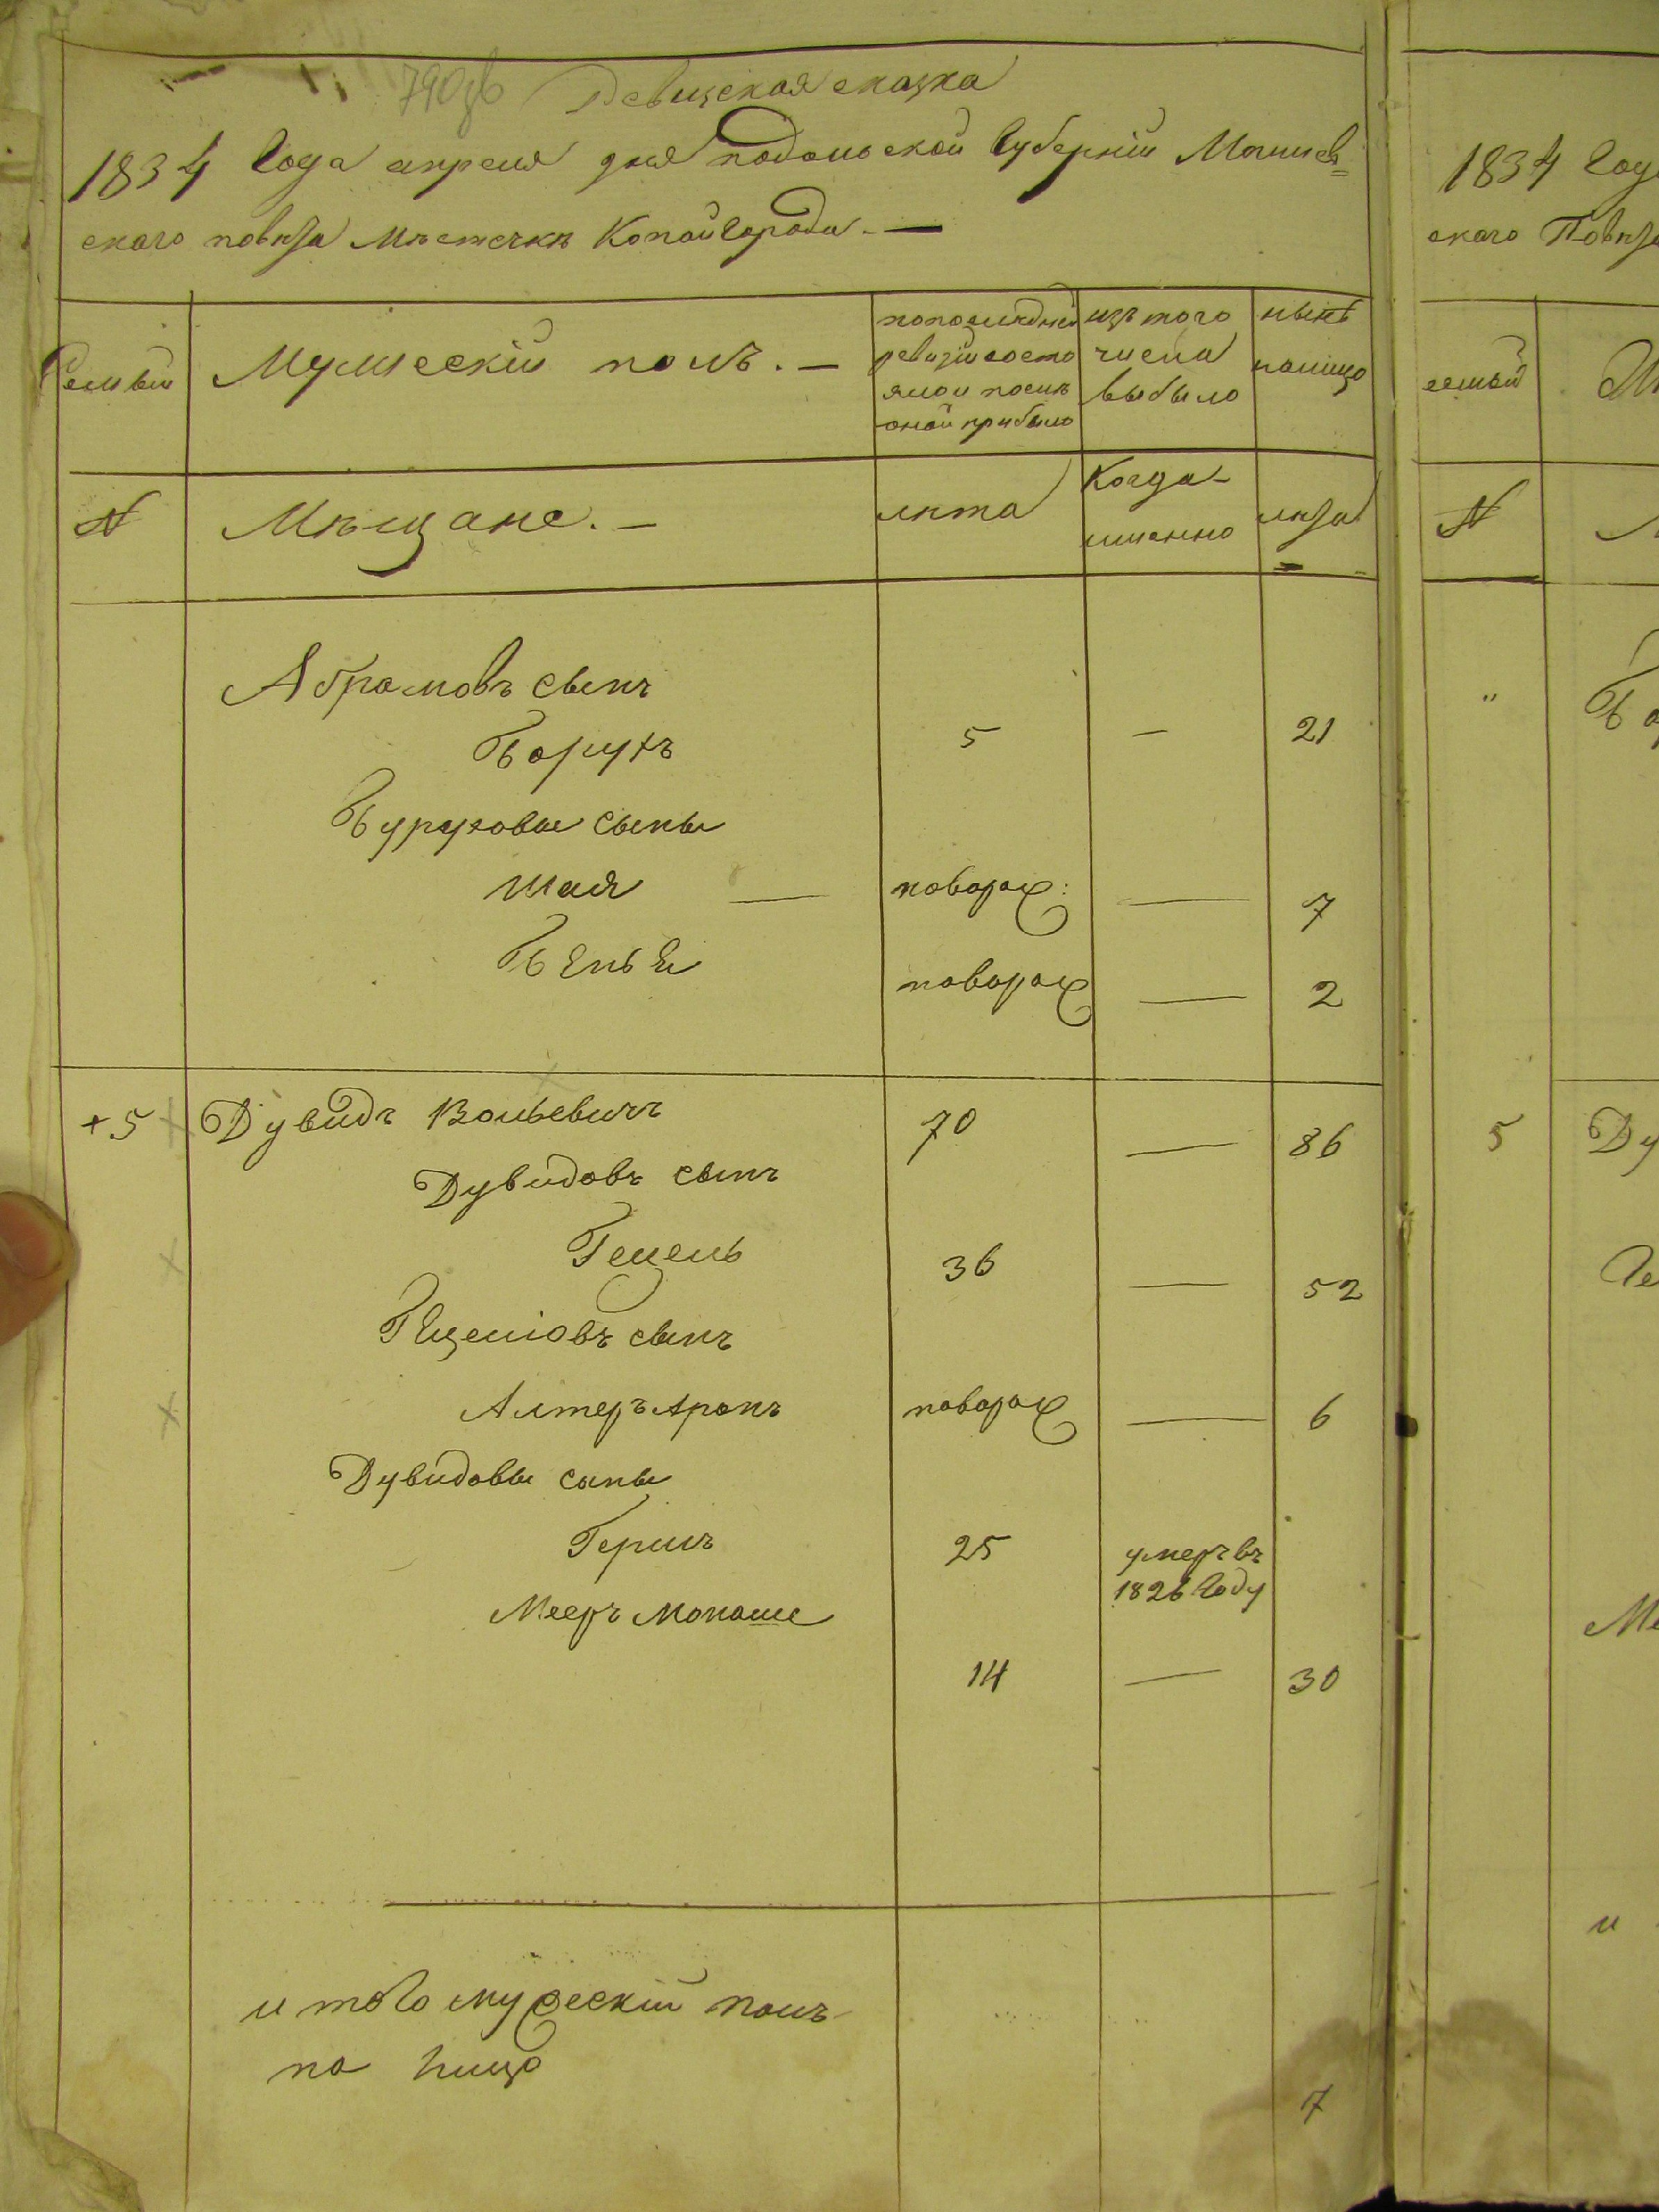 790 зв
Ревизская сказка
1834 Года апреля дня подольской Губернїи Могилев=
скаго повѣта Мѣстечкѣ Копайгорода. —
Семьи
Мужескїй полъ. —
попоследней
ревизїи состо
яло и послѣ
оной прибыло
изъ того
числа
выбыло
нынѣ
налицо
N
Мѣщане. —
лѣта
Когда-
именно
лѣта
Абрамовъ сынъ
Борухъ 5 — 21
Буруховы сыны
Шая — новорож: — 7
Бенья новорож — 2
+5 Дувидъ Вольевичъ 70 — 86
Дувидовъ сынъ
Гецель 36 — 52
Гецеліовъ сынъ
Алтеръ Аронъ новорож — 6
Дувидовы сыны
Гершъ 25 умеръ въ
1826 Году
Мееръ Монаше
14 — 30
итого мужескїй полъ
на лицо
7
1834 Году
скаго Повѣта
семьи
N
"
5 Ду
Ге
Ме
и